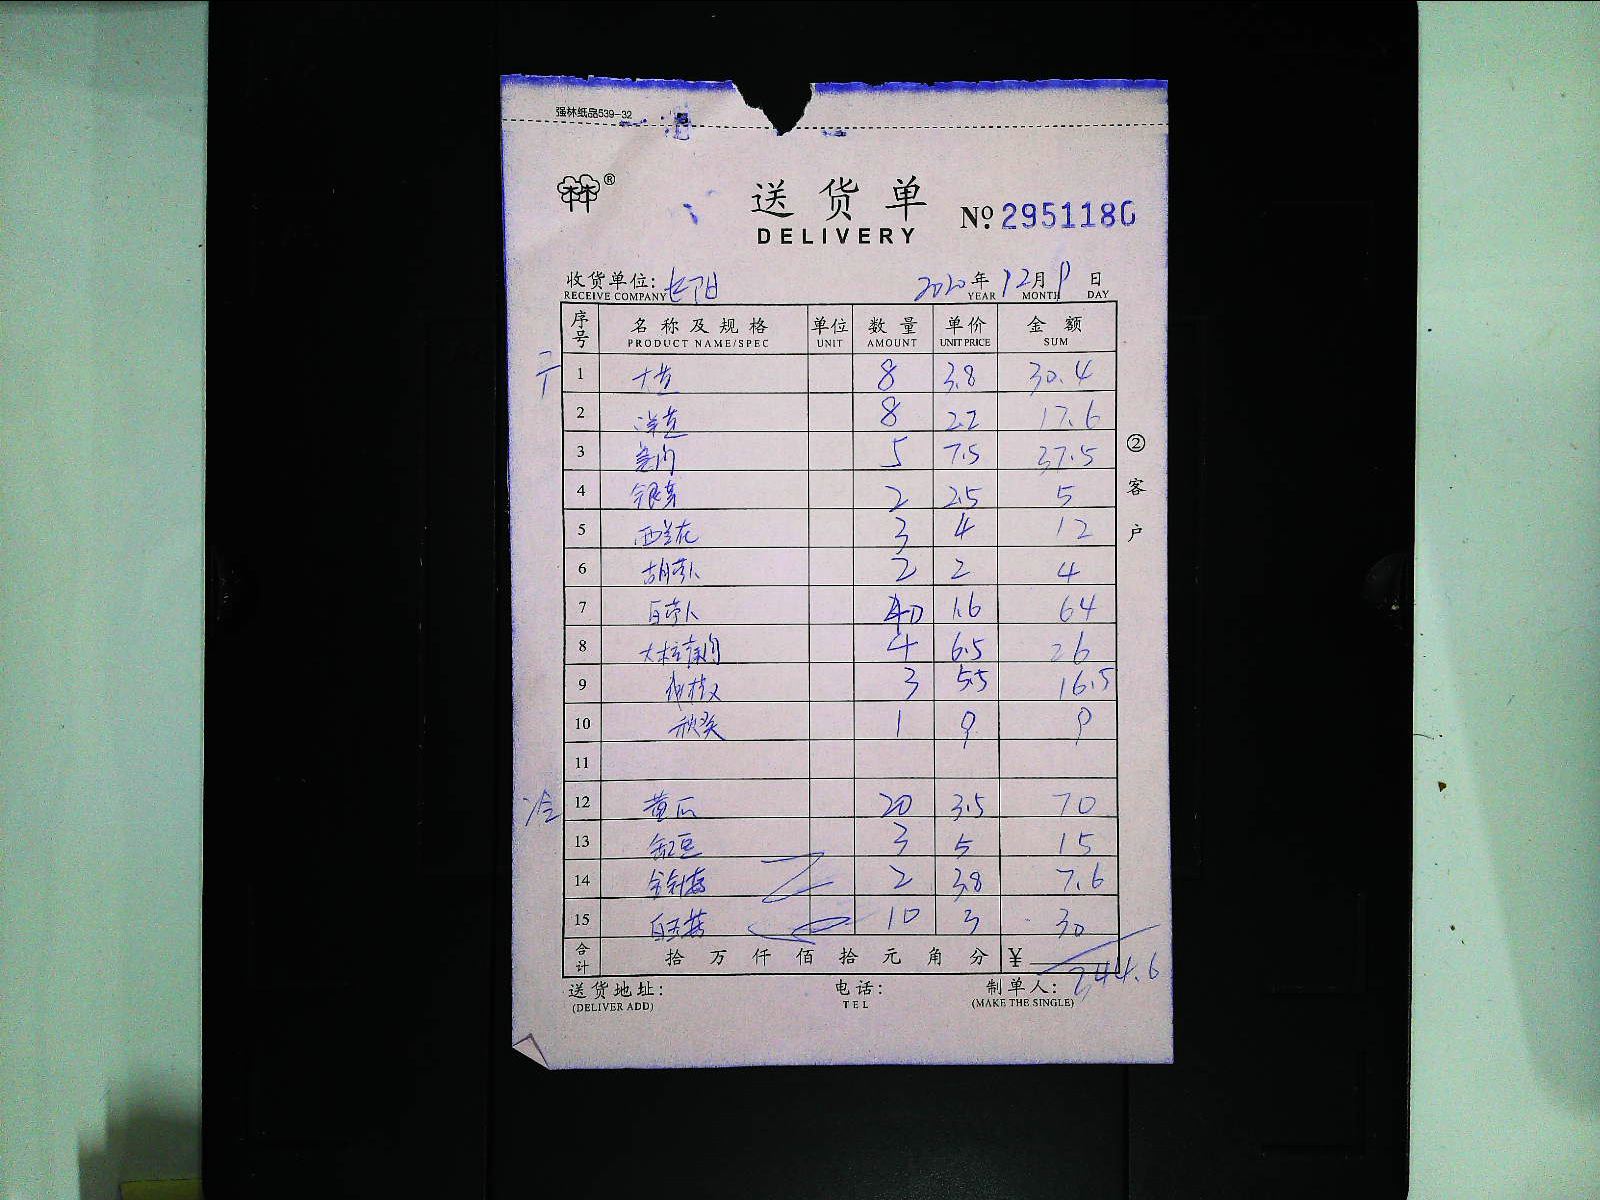 强林纸品539-32
林®
送货单
DELIVERY
№ 2951180
收货单位: 长阳 2020年12月9日
RECEIVE COMPANY YEAR MONTH DAY
序号 名称及规格 单位 数量 单价 金额
PRODUCT NAME/SPEC UNIT AMOUNT UNIT PRICE SUM
1 大葱 8 3.8 30.4
2 洋葱 8 2.2 17.6
3 5 7.5 37.5
4 银芽 2 2.5 5
5 西兰花 3 4 12
6 胡萝卜 2 2 4
7 白萝卜 40 1.6 64
8 4 6.5 26
9 3 5.5 16.5
10 秋葵 1 9 9
11
冷 12 黄瓜 20 3.5 70
13 缸豆 3 5 15
14 金针菇 2 3.8 7.6
15 白玉菇 10 3 30
合计 拾万仟佰拾元角分 ¥ 244.6
送货地址: 电话: 制单人:
(DELIVER ADD) TEL (MAKE THE SINGLE)
②客户